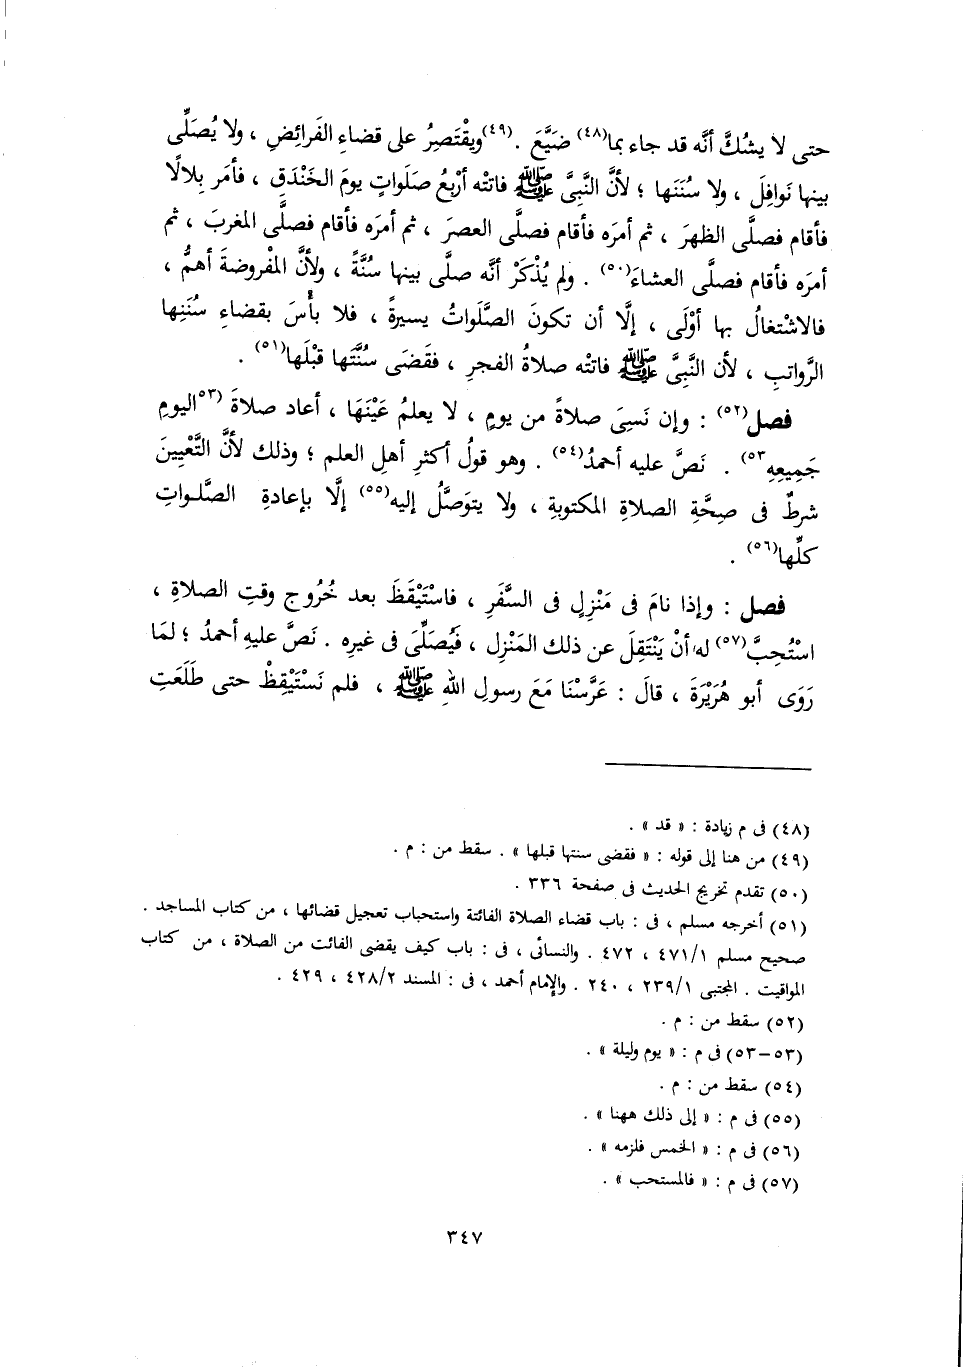 حتى لا يشُكَّ أنَّه قد جاء بما(٤٨) ضَيَّعَ . (٤٩)ويقْتَصِرُ على قضاءِ الفَرائِضِ ، ولا يُصَلِّى
بينها نَوافِلَ ، ولا سُنَنَها ؛ لأنَّ النَّبِىَّ ﷺ فاتتْه أرْبعُ صَلَواتٍ يومَ الخَنْدَقِ ، فأمَر بِلالًا
فأقام فصلَّى الظهرَ ، ثم أمرَه فأقام فصلَّى العصرَ ، ثم أمرَه فأقام فصلَّى المغربَ ، ثم
أمرَه فأقام فصلَّى العشاءَ(٥٠) . ولم يُذْكَرْ أنَّه صلَّى بينها سُنَّةً ، ولأنَّ المْفروضةَ أهمُّ ،
فالاشْتغالُ بها أوْلَى ، إلَّا أن تكونَ الصَّلَواتُ يسيرةً ، فلا بأْسَ بقضاءِ سُنَنِها
الرَّواتبِ ، لأن النَّبِىَّ ﷺ فاتتْه صلاةُ الفجرِ ، فقَضَى سُنَّتَها قبْلَها(٥١) .
فصل(٥٢) : وإن نَسِىَ صلاةً من يومٍ ، لا يعلمُ عَيْنَهَا ، أعاد صلاةَ (٥٣اليومِ
جَمِيعِهِ٥٣) . نَصَّ عليه أحمدُ(٥٤) . وهو قولُ أكثرِ أهلِ العلم ؛ وذلك لأنَّ التَّعْيِينَ
شرطٌ فى صِحَّةِ الصلاةِ المكتوبةِ ، ولا يتوَصَّلُ إليه(٥٥) إلَّا بإعادةِ الصَّلـواتِ
كلِّها(٥٦) .
فصل : وإذا نامَ فى مَنْزِلٍ فى السَّفَرِ ، فاسْتَيْقَظَ بعد خُرُوج وقتِ الصلاةِ ،
اسْتُحِبَّ(٥٧) له أنْ يَنْتَقِلَ عن ذلك المَنْزِل ، فَيُصَلِّىَ فى غيرِه . نَصَّ عليهِ أحمدُ ؛ لمَا
رَوَى أبو هُرَيْرَةَ ، قالَ : عَرَّسْنَا مَعَ رسولِ اللهِ ﷺ ، فلم نَسْتَيْقِظْ حتى طَلَعَتِ
(٤٨) فى م زيادة : « قد » .
(٤٩) من هنا إلى قوله : « فقضى سنتها قبلها » . سقط من : م .
(٥٠) تقدم تخريج الحديث فى صفحة ٣٣٦ .
(٥١) أخرجه مسلم ، فى : باب قضاء الصلاة الفائتة واستحباب تعجيل قضائها ، من كتاب المساجد .
صحيح مسلم ٤٧١/١ ، ٤٧٢ . والنسائى ، فى : باب كيف يقضى الفائت من الصلاة ، من كتاب
المواقيت . المجتبى ٢٣٩/١ ، ٢٤٠ . والإمام أحمد ، فى : المسند ٤٢٨/٢ ، ٤٢٩ .
(٥٢) سقط من : م .
(٥٣-٥٣) فى م : « يوم وليلة » .
(٥٤) سقط من : م .
(٥٥) فى م : « إلى ذلك ههنا » .
(٥٦) فى م : « الخمس فلزمه » .
(٥٧) فى م : « فالمستحب » .
٣٤٧